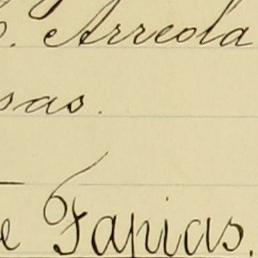 C. Arreola
sas.
e Tapias.